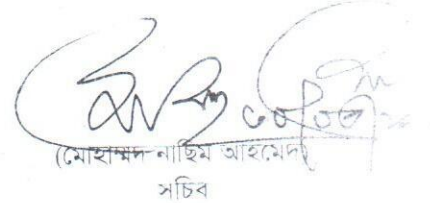 (মোহাম্মদ নাছিম আহমেদ)
সচিব